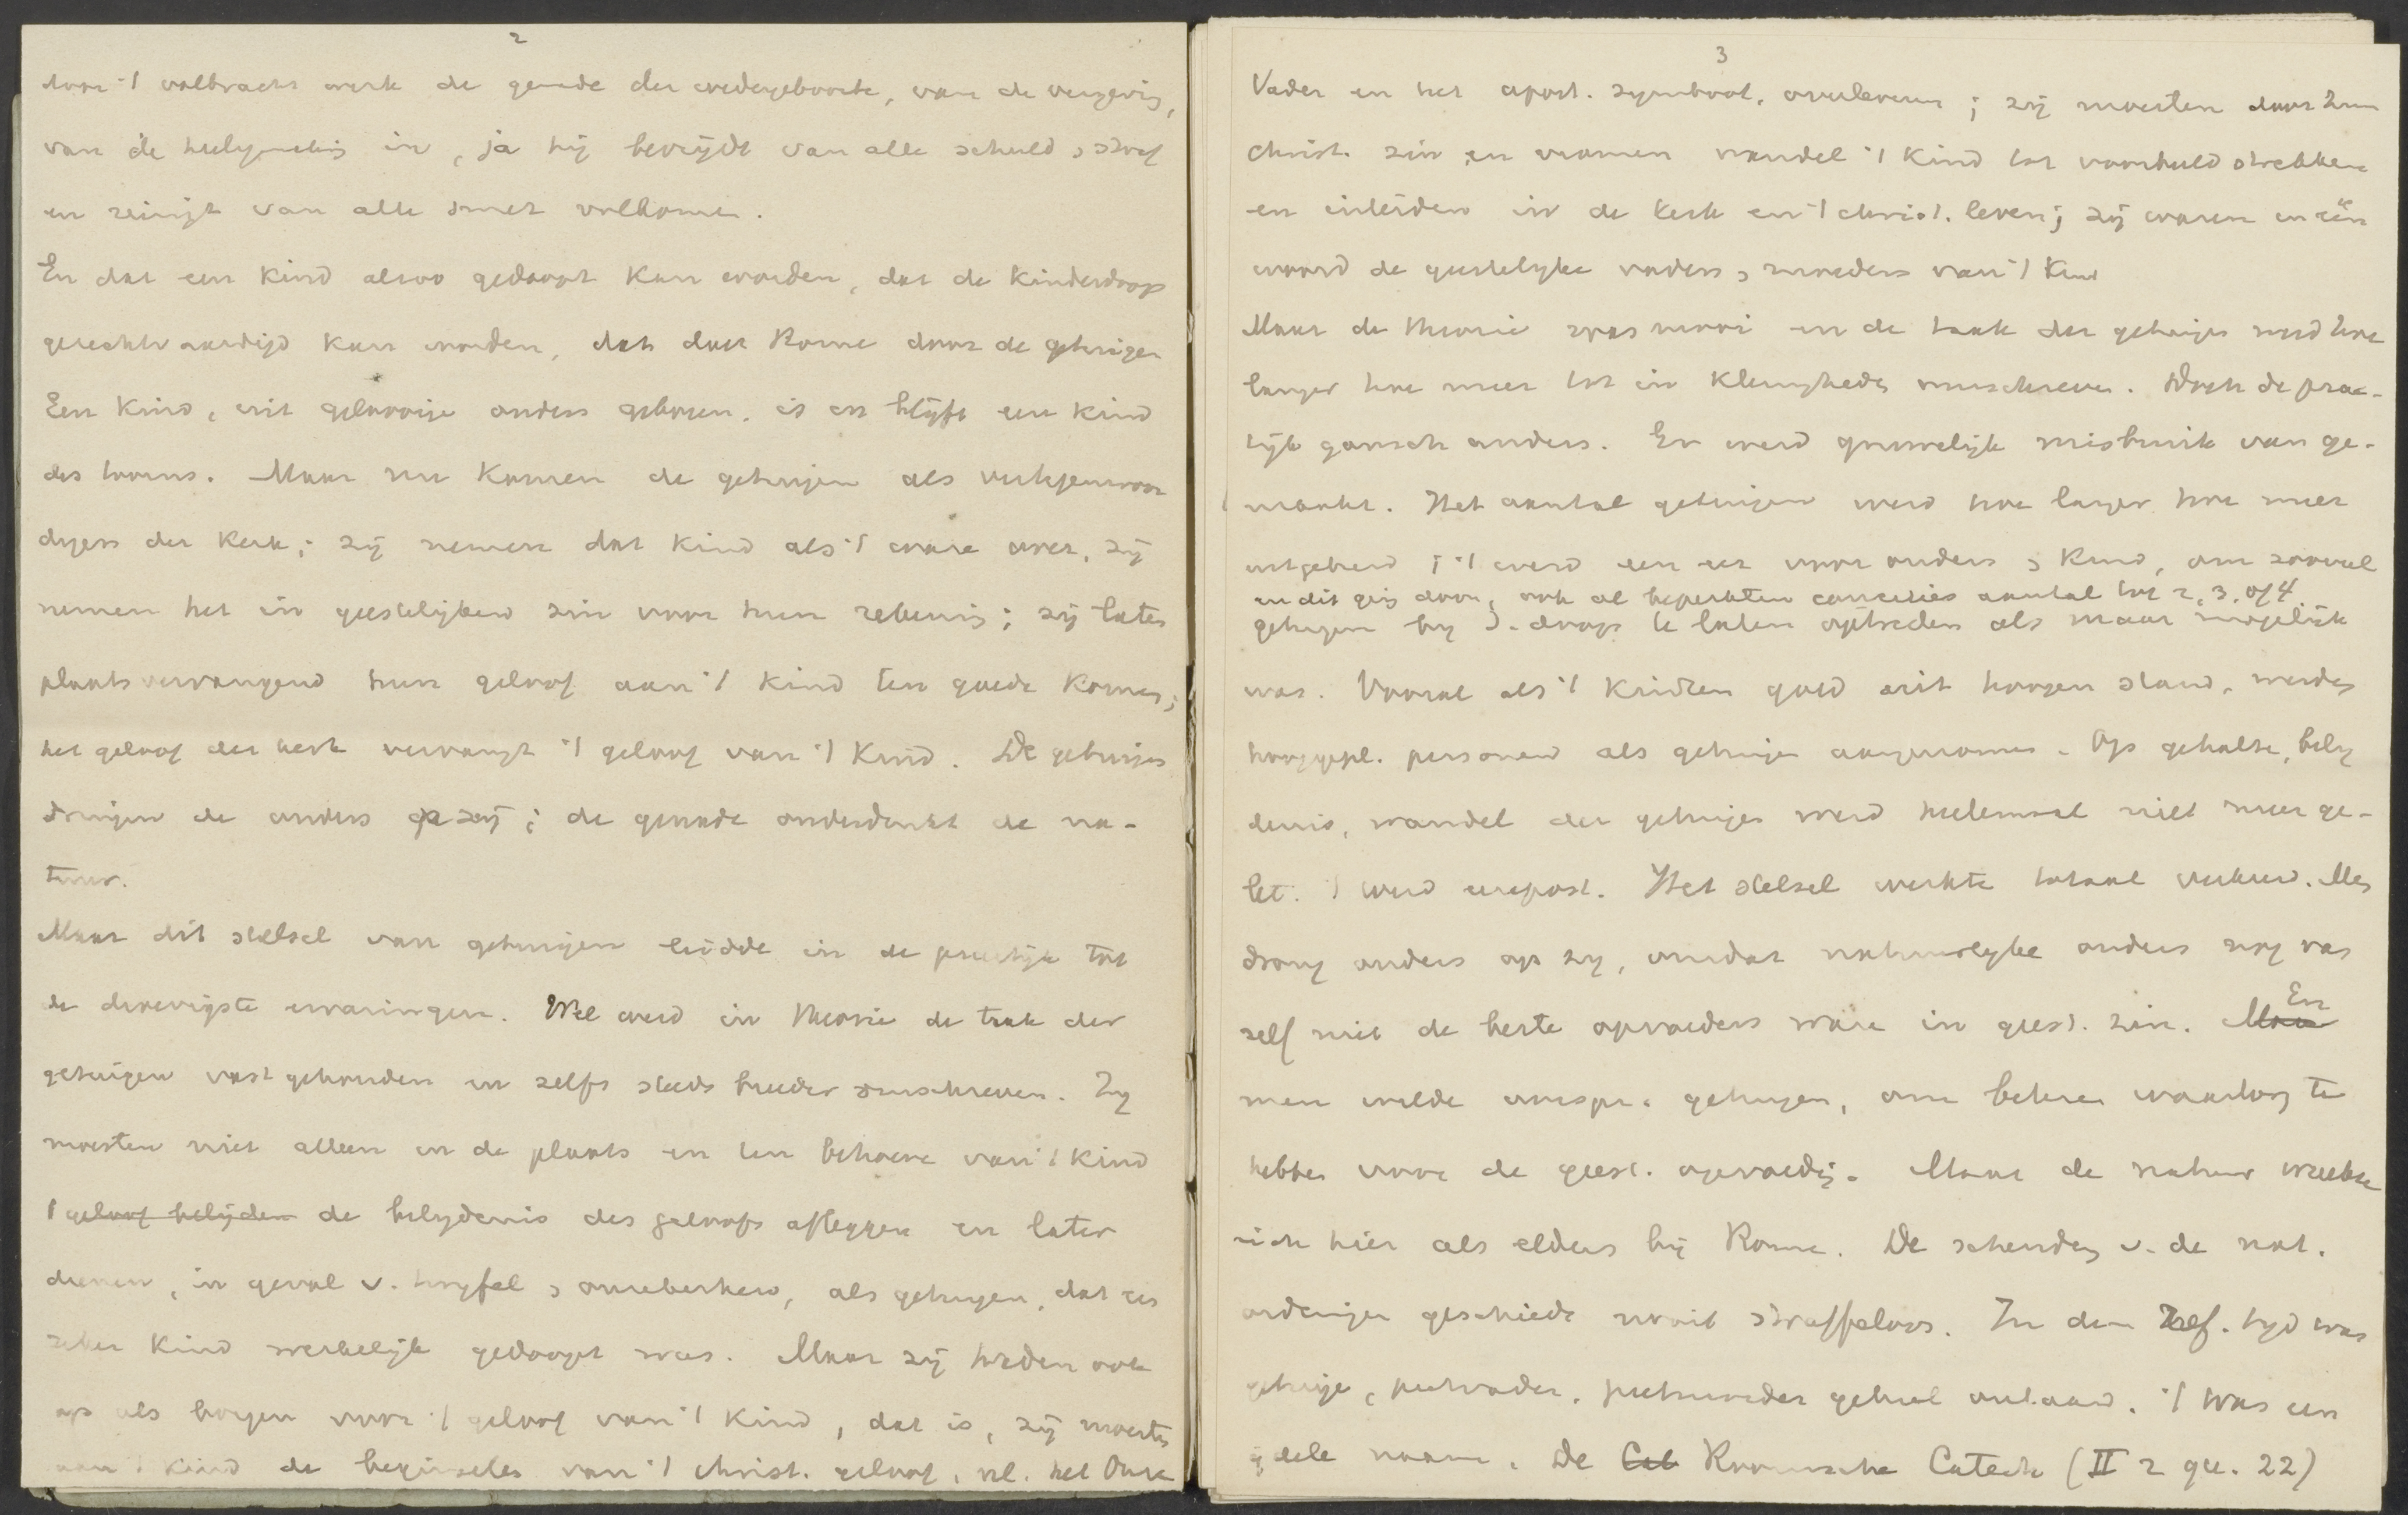 2
door 't volbracht werk de genade der wedergeboorte, van de vergevig,
van de heiligmakig in, ja hij bevrijdt van alle schuld, straf
en reinigt van alle smet volkomen.
En dat een kind alzoo gedoopt kan worden, dat de Kinderdoop
gerechtvaardigd kan worden, dat doet Rome door de getuigen
Een Kind, uit geloovige ouders geboren, is en blijft een kind
des toorns. Maar nu komen de getuigen als vertegenwoor
digers der Kerk; zij nemen dat kind als 't ware over, zij
nemen het in geestelijken zin voor hun rekening; zij laten
plaatsvervangend hun geloof aan 't kind ten goede komen;
het geloof der kerk vervangt 't geloof van 't Kind. De getuigen
dringen de ouders op zij; de genade onderdrukt de na-
tuur.
Maar dit stelsel van getuigen leidde in de practijk tot
de droevigste ervaringen. Wel werd in theorie de taak der
getuigen vastgehouden en zelfs steeds breeder omschreven. Zij
moesten niet alleen in de plaats en ten behoeve van 't kind
't geloof belijden de belijdenis des geloofs afleggen en later
dienen, in geval v. twijfel, onzekerheid, als getuigen, dat een
zeker Kind werkelijk gedoopt was. Maar zij traden ook
op als borgen voor 't geloof van 't Kind, dat is, zij moesten
aan 't kind de beginselen van 't christ. geloof, nl. het Onze
3
Vader en het apost. symbool, overleveren; zij moesten door hun
christ. zin en vromen wandel 't kind tot voorbeeld strekken
en inleiden in de kerk en 't christ. leven; zij waren in één
woord de geestelijke vaders, moeders van 't Kind
Maar de theorie was mooi en de taak der getuigen werd hoe
langer hoe meer tot in kleinigheden omschreven. Doch de prac-
tijk gansch anders. Er werd gruwelijk misbruik van ge-
maakt. Het aantal getuigen werd hoe langer hoe meer
uitgebreid; 't werd een eer voor ouders, Kind, om zooveel
en dit ging door, ook al beperkten concilies aantal tot 2, 3, of 4
getuigen bij d. doop te laten optreden als maar mogelijk
was. Vooral als 't kindren gold uit hoogen stand, werden
hooggepl. personen als getuigen aangenomen. Op gehalte, bely
denis, wandel der getuigen werd heelemaal niet meer ge-
let. 't werd eerepost. Het stelsel werkte totaal verkeerd. Men
drong ouders op zij, omdat natuurlijke ouders nog van
zelf niet de beste opvoeders waren in geest. zin. Maar En
men wilde oorspr. getuigen, om betere waarborg te
hebben voor de geest. opvoedig. Maar de natuur wreekte
zich hier als elders bij Rome. De schending v. de nat.
ordeningen geschiedt nooit straffeloos. In den Ref. tijd was
getuige, peetvader, peetmoeder geheel ontaard. 't Was een
ijdele naam. De Cat Roomsche Catech (II 2 qu. 22)